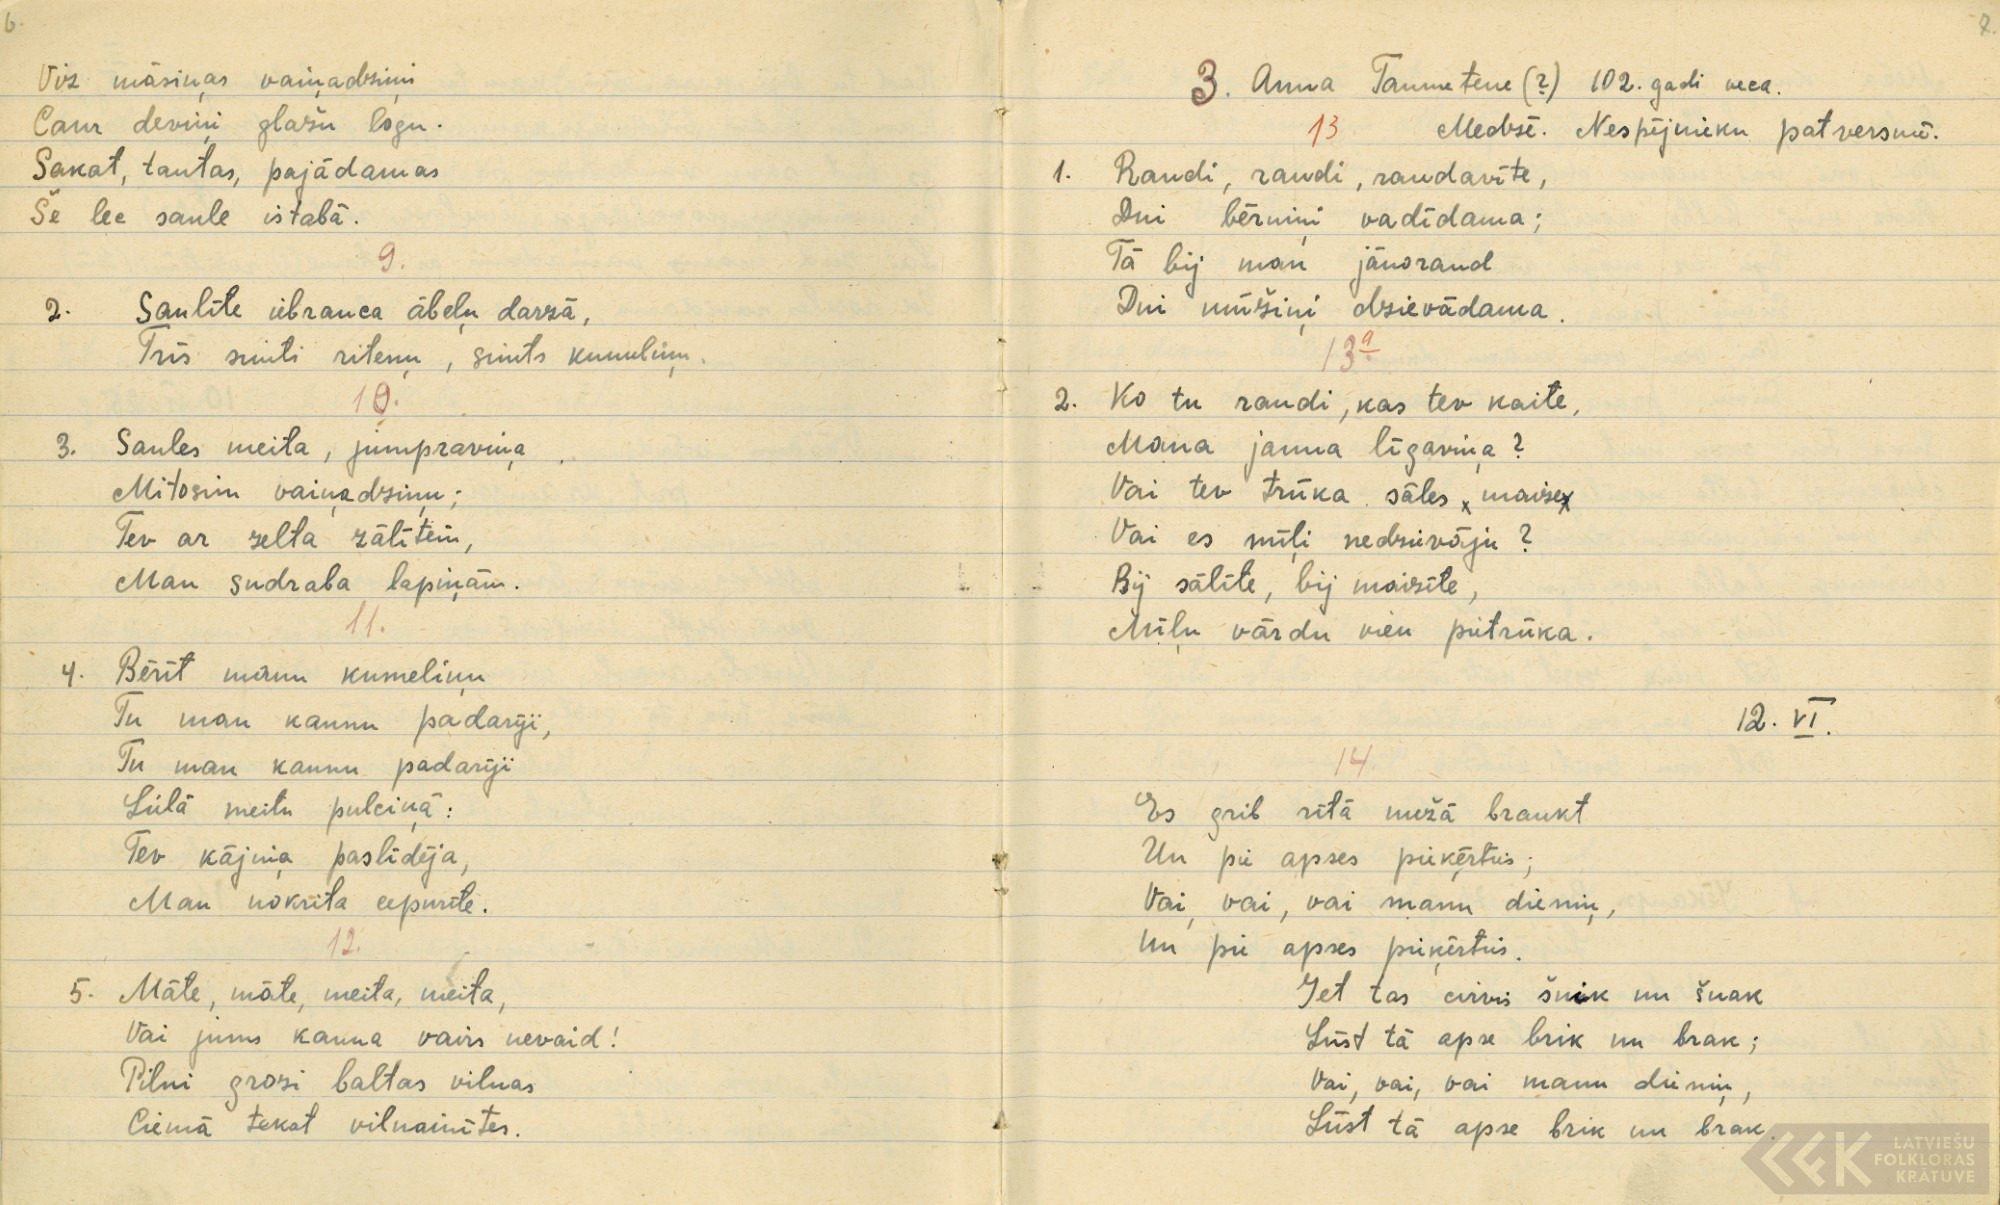 6.
Viz māsiņas vaiņadziņi
Caur deviņi glāžu logu.
Sakat, tautas, pajādamas
Še lec saule istabā.
9.
2. Saulīte iebrauca ābeļu darzā,
Trīs simti riteņu, simts kumeliņu.
10.
3. Saules meita, jumpraviņa
Mitosim vaiņadziņu;
Tev ar zelta zālītēm,
Man sudraba lapiņām.
11.
4. Bērīt manu kumeliņu
Tu man kaunu padarīji,
Tu man kaunu padarīji
Lielā meitu pulciņā:
Tev kājiņa paslīdēja,
Man nokrita cepurīte.
12.
5. Māte, māte, meita, meita,
Vai jums kauna vairs nevaid!
Pilni grozi baltas vilnas
Ciemā tekat vilnainītes.
7.
3. Anna Taumetene (?) 102. gadi veca.
13 Medzē. Nespējnieku patversmē.
1. Raudi, raudi, raudavīte,
Dui bērniņi vadīdama;
Tā bij man jānoraud
Dui mūžiņi dzievādama.
13a
2. Ko tu raudi, kas tev kaite,
Mana jauna līgaviņa?
Vai tev trūka sāles, maizes
Vai es mīļi nedzievāju?
Bij sālīte, bij maizīte,
Mīļu vārdu vien pietrūka.
12. VI.
14.
Es grib rītā mežā braukt
Un pie apses pieķērties;
Vai, vai, vai manu dieniņ,
Un pie apses pieķērties.
Iet tas cirvis šnik un šnak
Lūst tā apse brik un brak;
Vai, vai, vai manu dieniņ,
Lūst tā apse brik un brak.
LATVIEŠU
FOLKLORAS
KRĀTUVE